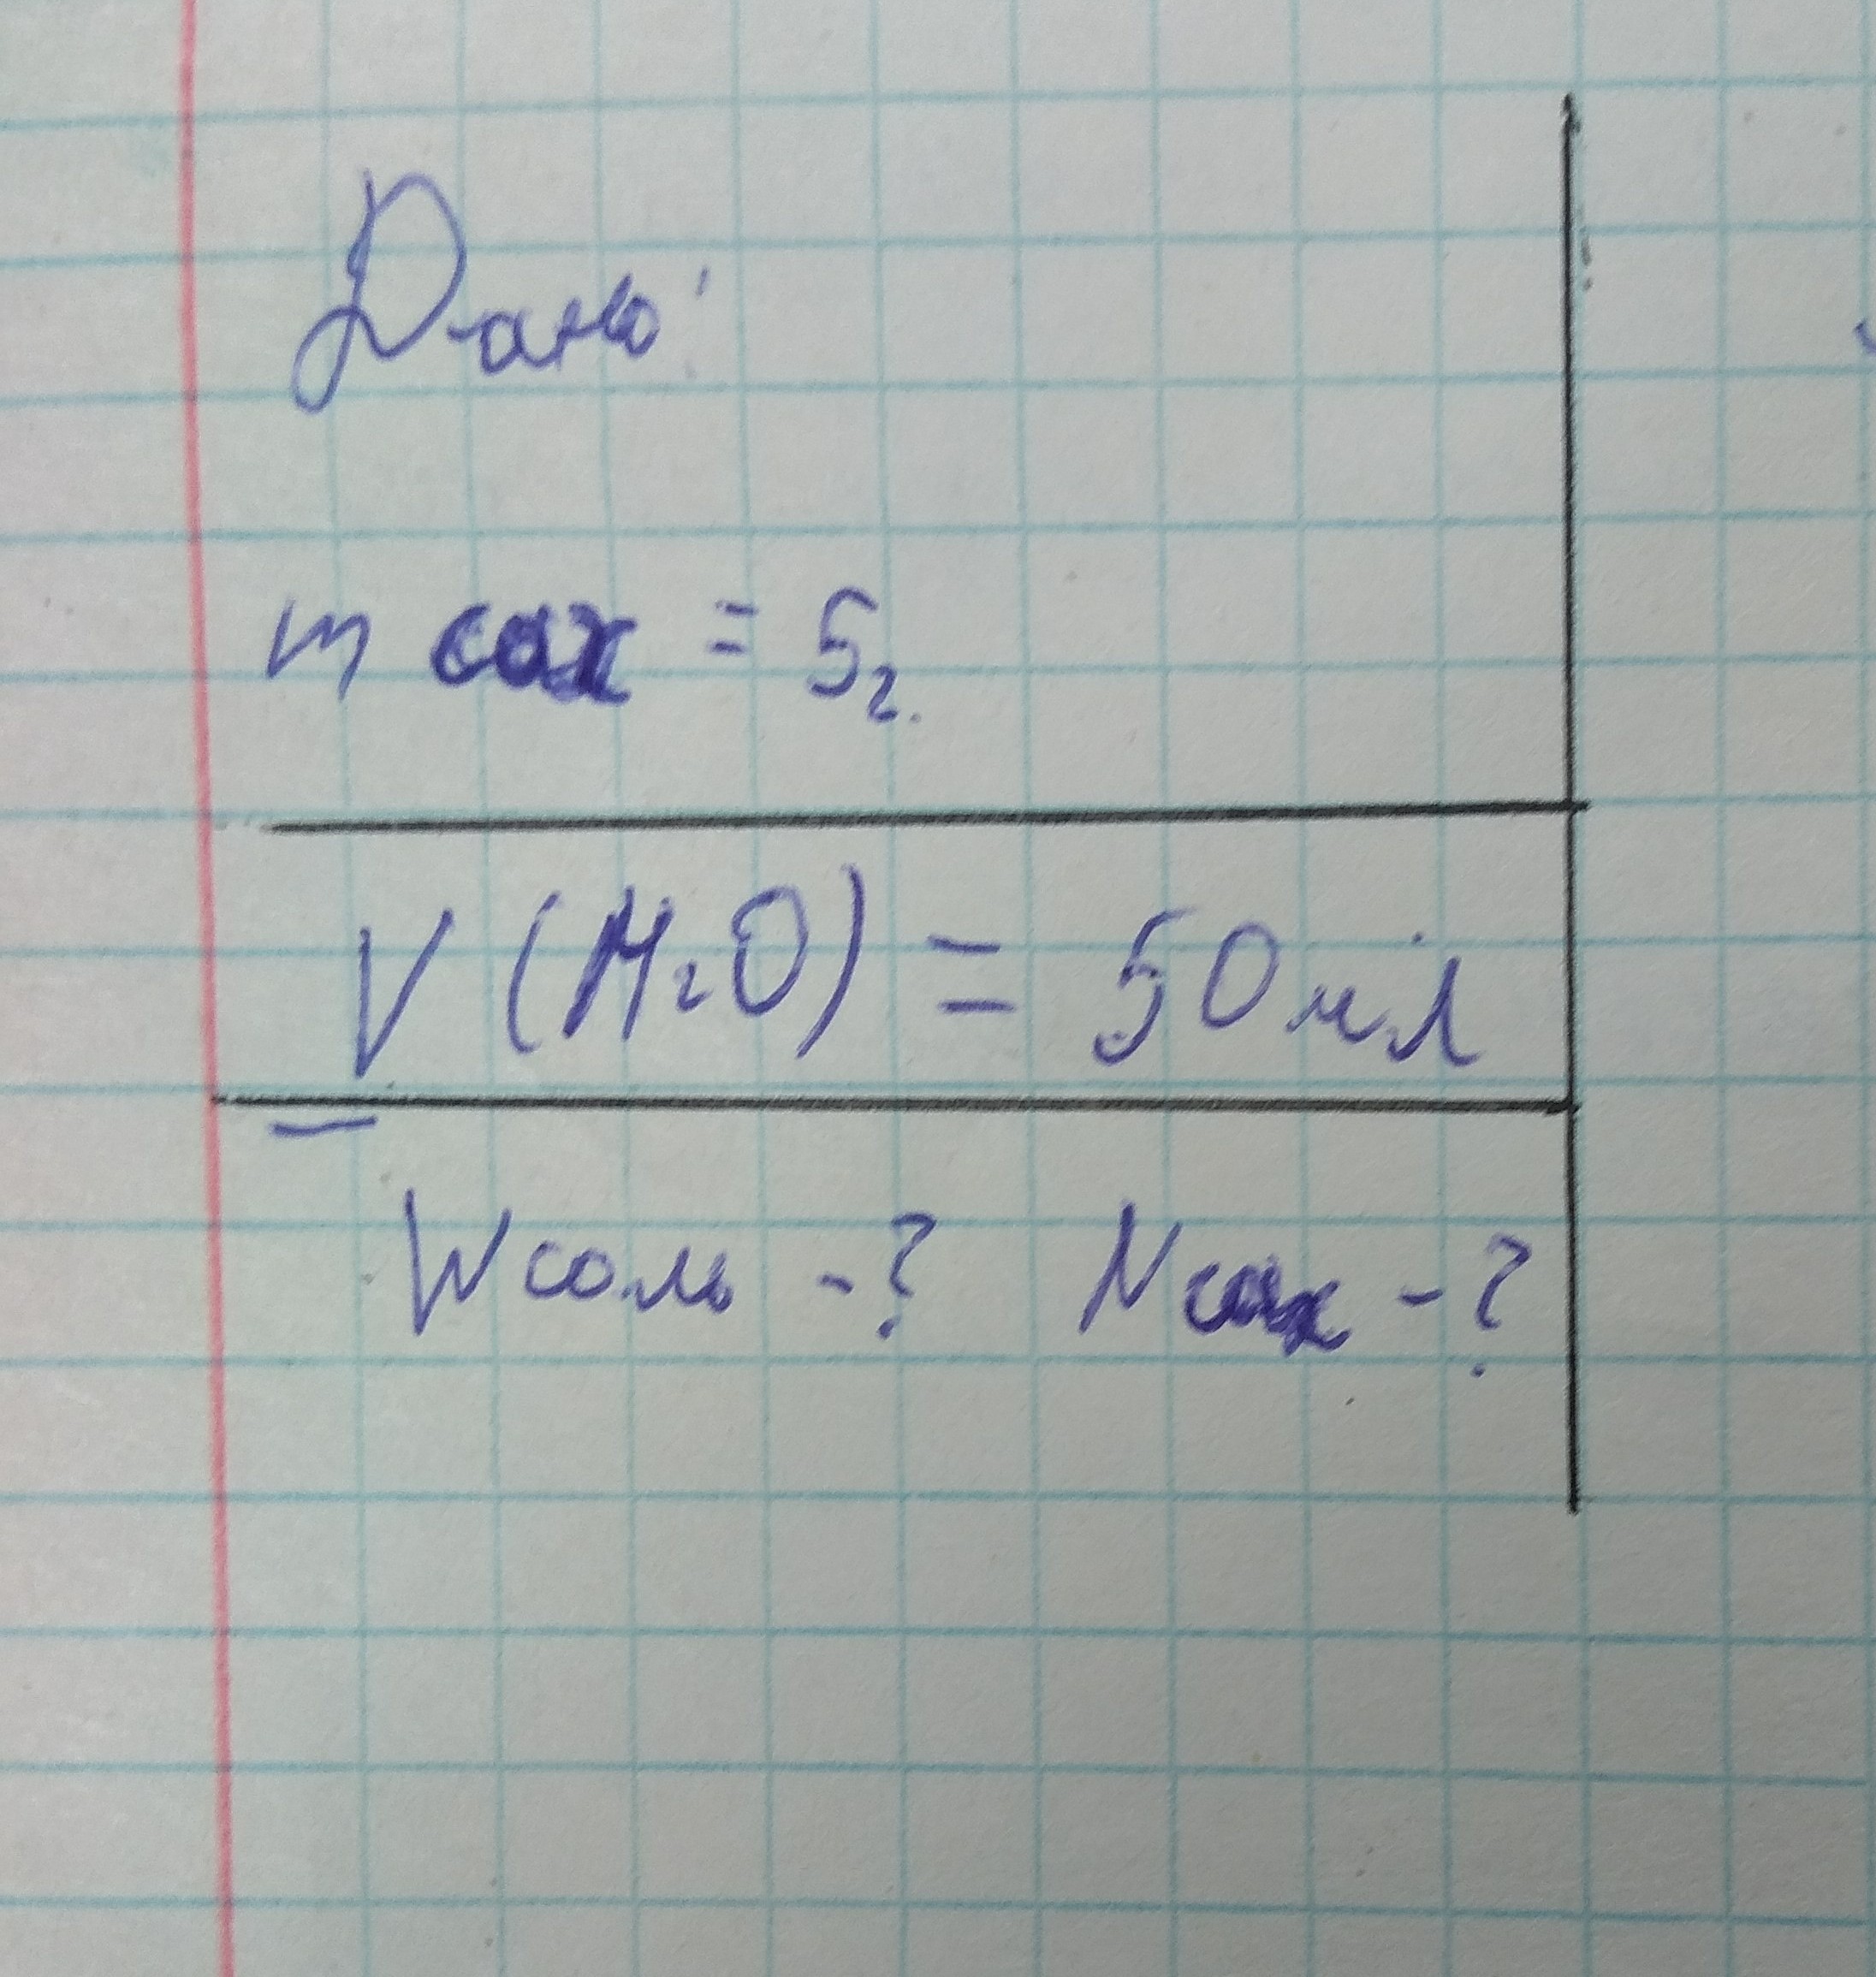 Дано:
m сах = 5г.
V (H₂O) = 50 мл
W соль - ? N сах - ?